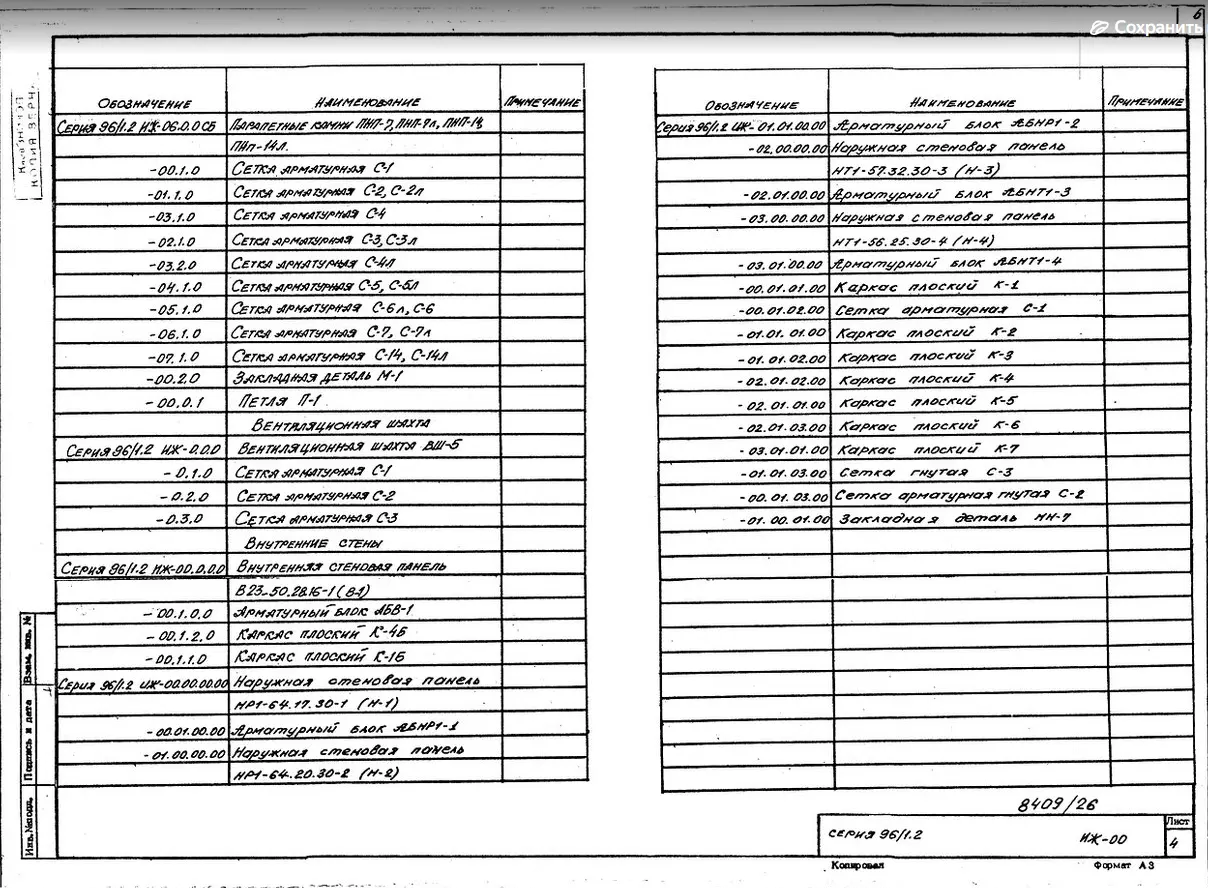 6
Сохранить
КОПИЯ ВЕРНА
ОБОЗНАЧЕНИЕ НАИМЕНОВАНИЕ ПРИМЕЧАНИЕ
СЕРИЯ 96/1.2 ИЖ-06.0.0 СБ ПАРАПЕТНЫЕ КАМНИ ПНП-7, ПНП-7Л, ПНП-14,
ПНП-14Л.
-00.1.0 СЕТКА АРМАТУРНАЯ С-1
-01.1.0 СЕТКА АРМАТУРНАЯ С-2, С-2Л
-03.1.0 СЕТКА АРМАТУРНАЯ С-4
-02.1.0 СЕТКА АРМАТУРНАЯ С-3, С-3Л
-03.2.0 СЕТКА АРМАТУРНАЯ С-4Л
-04.1.0 СЕТКА АРМАТУРНАЯ С-5, С-5Л
-05.1.0 СЕТКА АРМАТУРНАЯ С-6Л, С-6
-06.1.0 СЕТКА АРМАТУРНАЯ С-7, С-7Л
-07.1.0 СЕТКА АРМАТУРНАЯ С-14, С-14Л
-00.2.0 ЗАКЛАДНАЯ ДЕТАЛЬ М-1
-00.0.1 ПЕТЛЯ П-1
ВЕНТИЛЯЦИОННАЯ ШАХТА
СЕРИЯ 96/1.2 ИЖ-0.0.0 ВЕНТИЛЯЦИОННАЯ ШАХТА ВШ-5
-0.1.0 СЕТКА АРМАТУРНАЯ С-1
-0.2.0 СЕТКА АРМАТУРНАЯ С-2
-0.3.0 СЕТКА АРМАТУРНАЯ С-3
ВНУТРЕННИЕ СТЕНЫ
СЕРИЯ 96/1.2 ИЖ-00.0.0.0 ВНУТРЕННЯЯ СТЕНОВАЯ ПАНЕЛЬ
В23-50.28.16-1 (В-1)
-00.1.0.0 АРМАТУРНЫЙ БЛОК АБВ-1
-00.1.2.0 КАРКАС ПЛОСКИЙ К-4Б
-00.1.1.0 КАРКАС ПЛОСКИЙ К-1Б
СЕРИЯ 96/1.2 ИЖ-00.00.00.00 НАРУЖНАЯ СТЕНОВАЯ ПАНЕЛЬ
НР1-64.17.30-1 (Н-1)
-00.01.00.00 АРМАТУРНЫЙ БЛОК АБНР1-1
-01.00.00.00 НАРУЖНАЯ СТЕНОВАЯ ПАНЕЛЬ
НР1-64.20.30-2 (Н-2)
ОБОЗНАЧЕНИЕ НАИМЕНОВАНИЕ ПРИМЕЧАНИЕ
СЕРИЯ 96/1.2 ИЖ-01.01.00.00 АРМАТУРНЫЙ БЛОК АБНР1-2
-02.00.00.00 НАРУЖНАЯ СТЕНОВАЯ ПАНЕЛЬ
НТ1-57.32.30-3 (Н-3)
-02.01.00.00 АРМАТУРНЫЙ БЛОК АБНТ1-3
-03.00.00.00 НАРУЖНАЯ СТЕНОВАЯ ПАНЕЛЬ
НТ1-56.25.30-4 (Н-4)
-03.01.00.00 АРМАТУРНЫЙ БЛОК АБНТ1-4
-00.01.01.00 КАРКАС ПЛОСКИЙ К-1
-00.01.02.00 СЕТКА АРМАТУРНАЯ С-1
-01.01.01.00 КАРКАС ПЛОСКИЙ К-2
-01.01.02.00 КАРКАС ПЛОСКИЙ К-3
-02.01.02.00 КАРКАС ПЛОСКИЙ К-4
-02.01.01.00 КАРКАС ПЛОСКИЙ К-5
-02.01.03.00 КАРКАС ПЛОСКИЙ К-6
-03.01.01.00 КАРКАС ПЛОСКИЙ К-7
-01.01.03.00 СЕТКА ГНУТАЯ С-3
-00.01.03.00 СЕТКА АРМАТУРНАЯ ГНУТАЯ С-2
-01.00.01.00 ЗАКЛАДНАЯ ДЕТАЛЬ МН-7
Взам. инв. №
Подпись и дата
Инв. № подл.
8409/26
СЕРИЯ 96/1.2 ИЖ-00
Лист
4
Копировал Формат А3